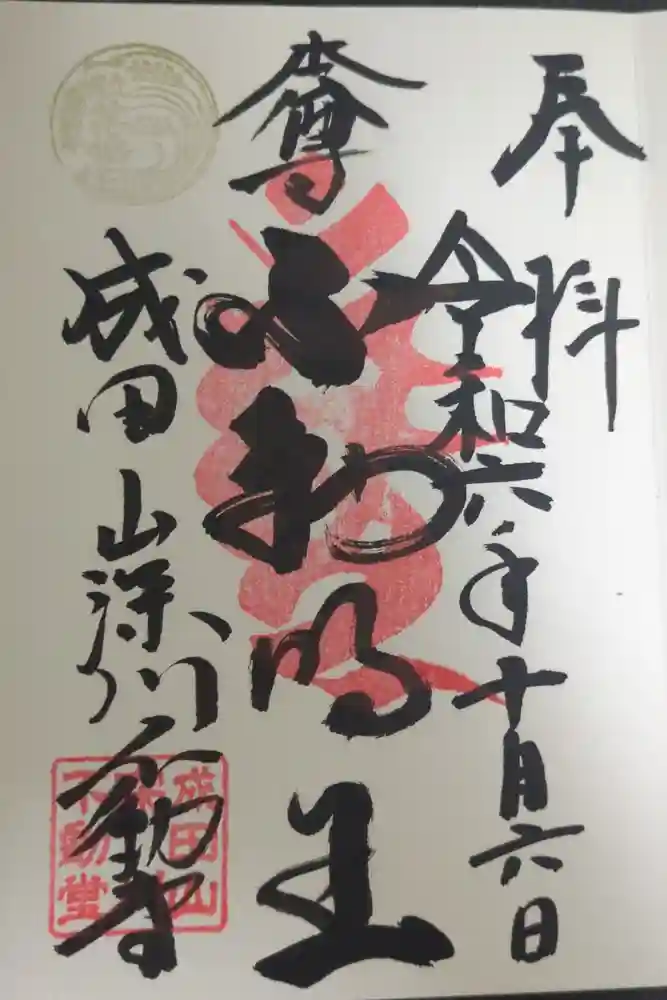 奉拝
令和六年十月六日
本尊
不動明王
成田山深川不動尊
成田山
深川
不動堂